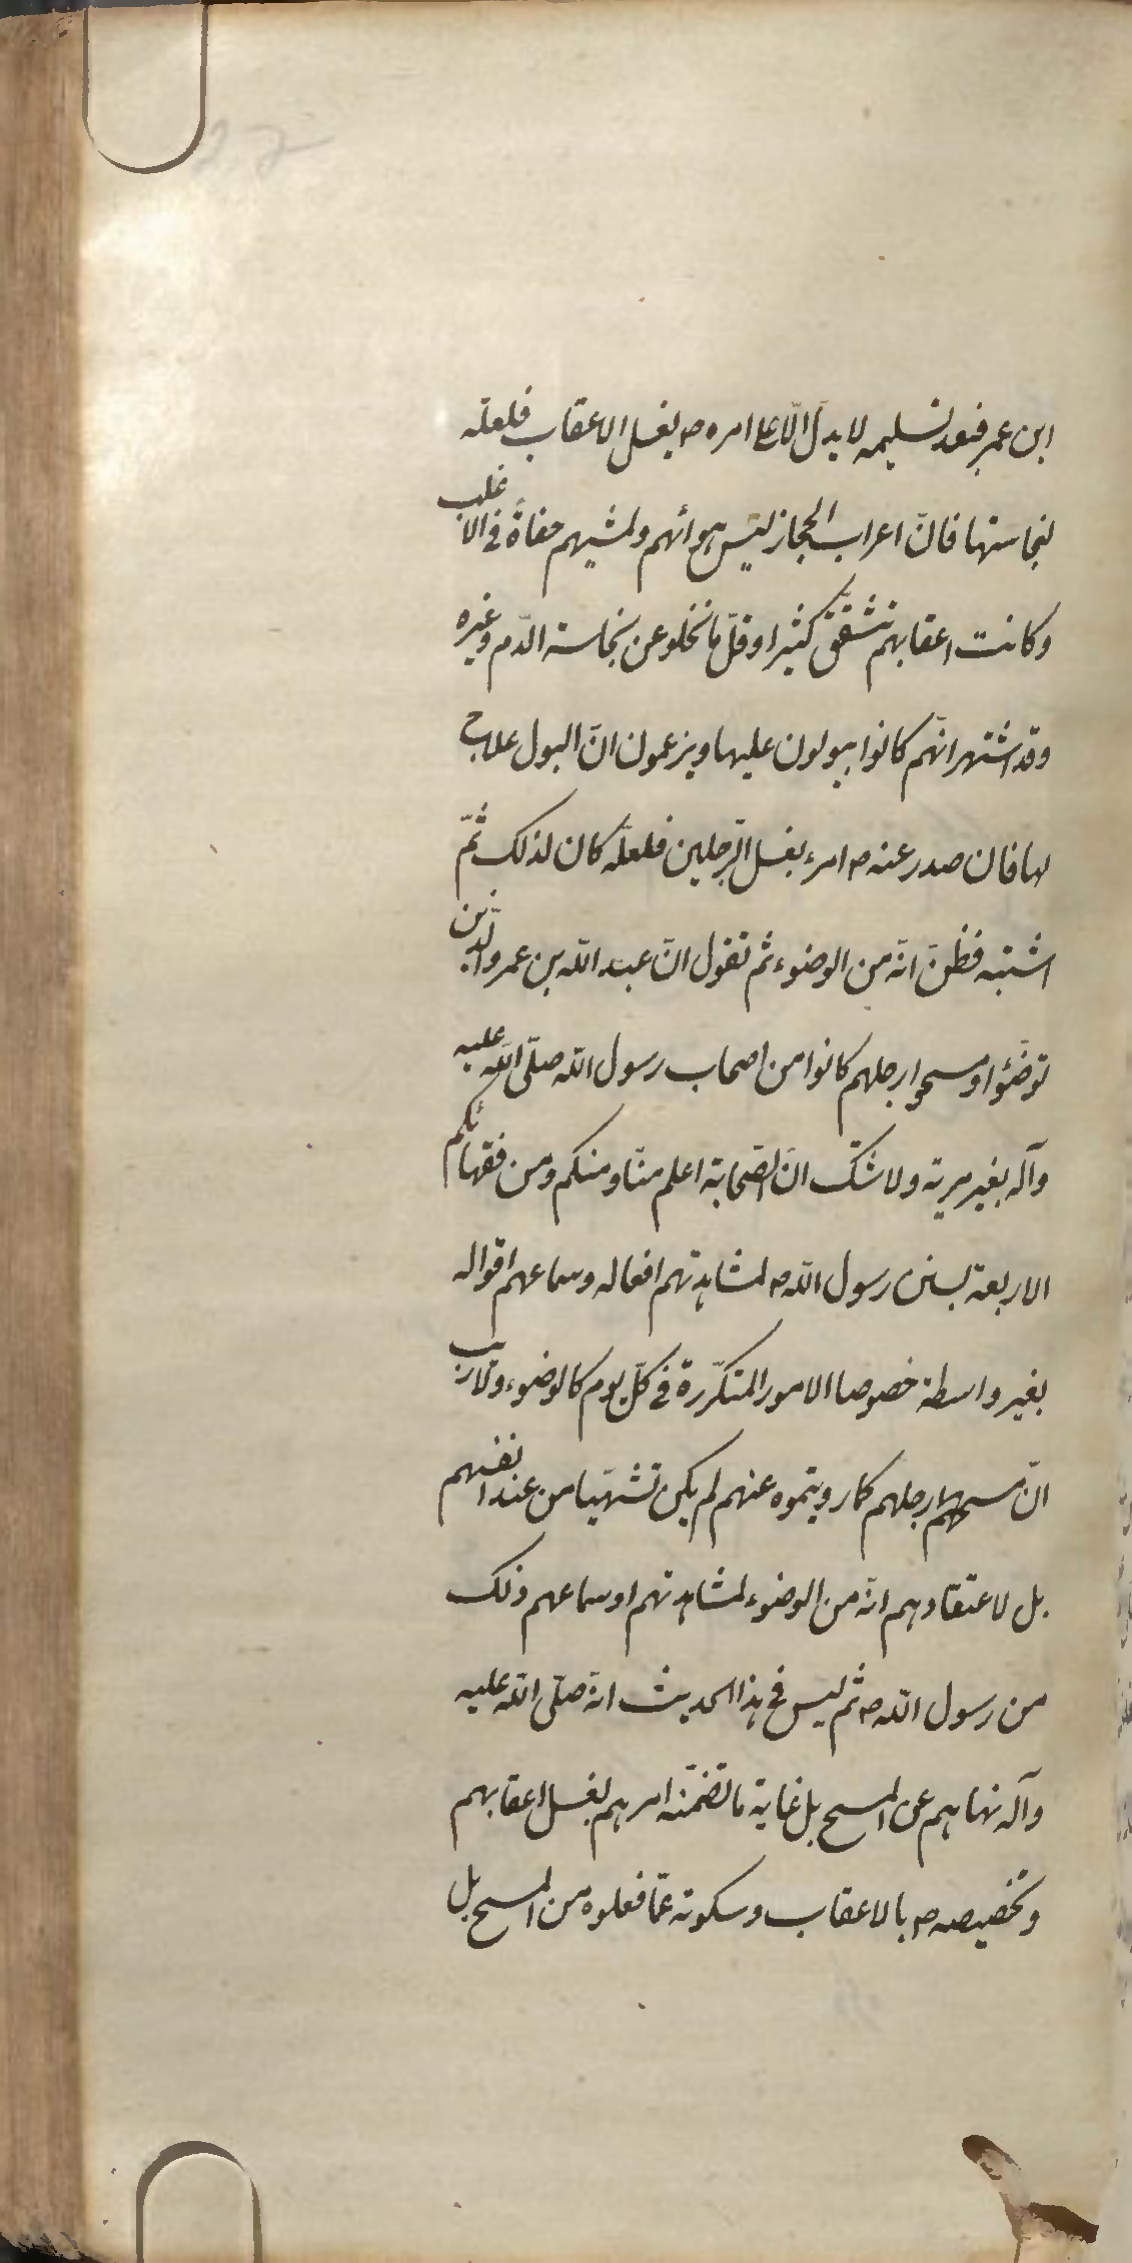 ابن عمر فبعد تسليمه لا يدلّ الّا على امره ص بغسل الاعقاب فلعلّه
لنجاستها فانّ اعراب الحجاز ليبس هوائهم ولمشيهم حفاةً فى الاغلب
وكانت اعقابهم تشقّق كثيرا وقلّ ما تخلو عن نجاسة الدّم وغيره
وقد اشتهر انّهم كانوا يبولون عليها ويزعمون انّ البول علاج
لها فان صدر عنه ص امر بغسل الرّجلين فلعلّه كان لذلك ثمّ
اشتبه فظنّ انّه من الوضوء ثم نقول انّ عبد الله بن عمر والّذين
توضّئوا ومسحوا ارجلهم كانوا من اصحاب رسول الله صلّى الله عليه
وآله بغير مرية ولا شكّ انّ الصّحابة اعلم منّا ومنكم ومن فقهائكم
الاربعة بسنن رسول الله ص لمشاهدتهم افعاله وسماعهم اقواله
بغير واسطة خصوصا الامور المتكرّرة فى كلّ يوم كالوضوء ولا ريب
انّ مسحهم ارجلهم كما رويتموه عنهم لم يكن تشهّيا من عند انفسهم
بل لاعتقادهم انّه من الوضوء لمشاهدتهم او سماعهم ذلك
من رسول الله ص ثم ليس فى هذا الحديث انّه صلّى الله عليه
وآله نهاهم عن المسح بل غاية ما تضمّنه امرهم بغسل اعقابهم
وتخصيصه ص بالاعقاب وسكوته عمّا فعلوه من المسح بل